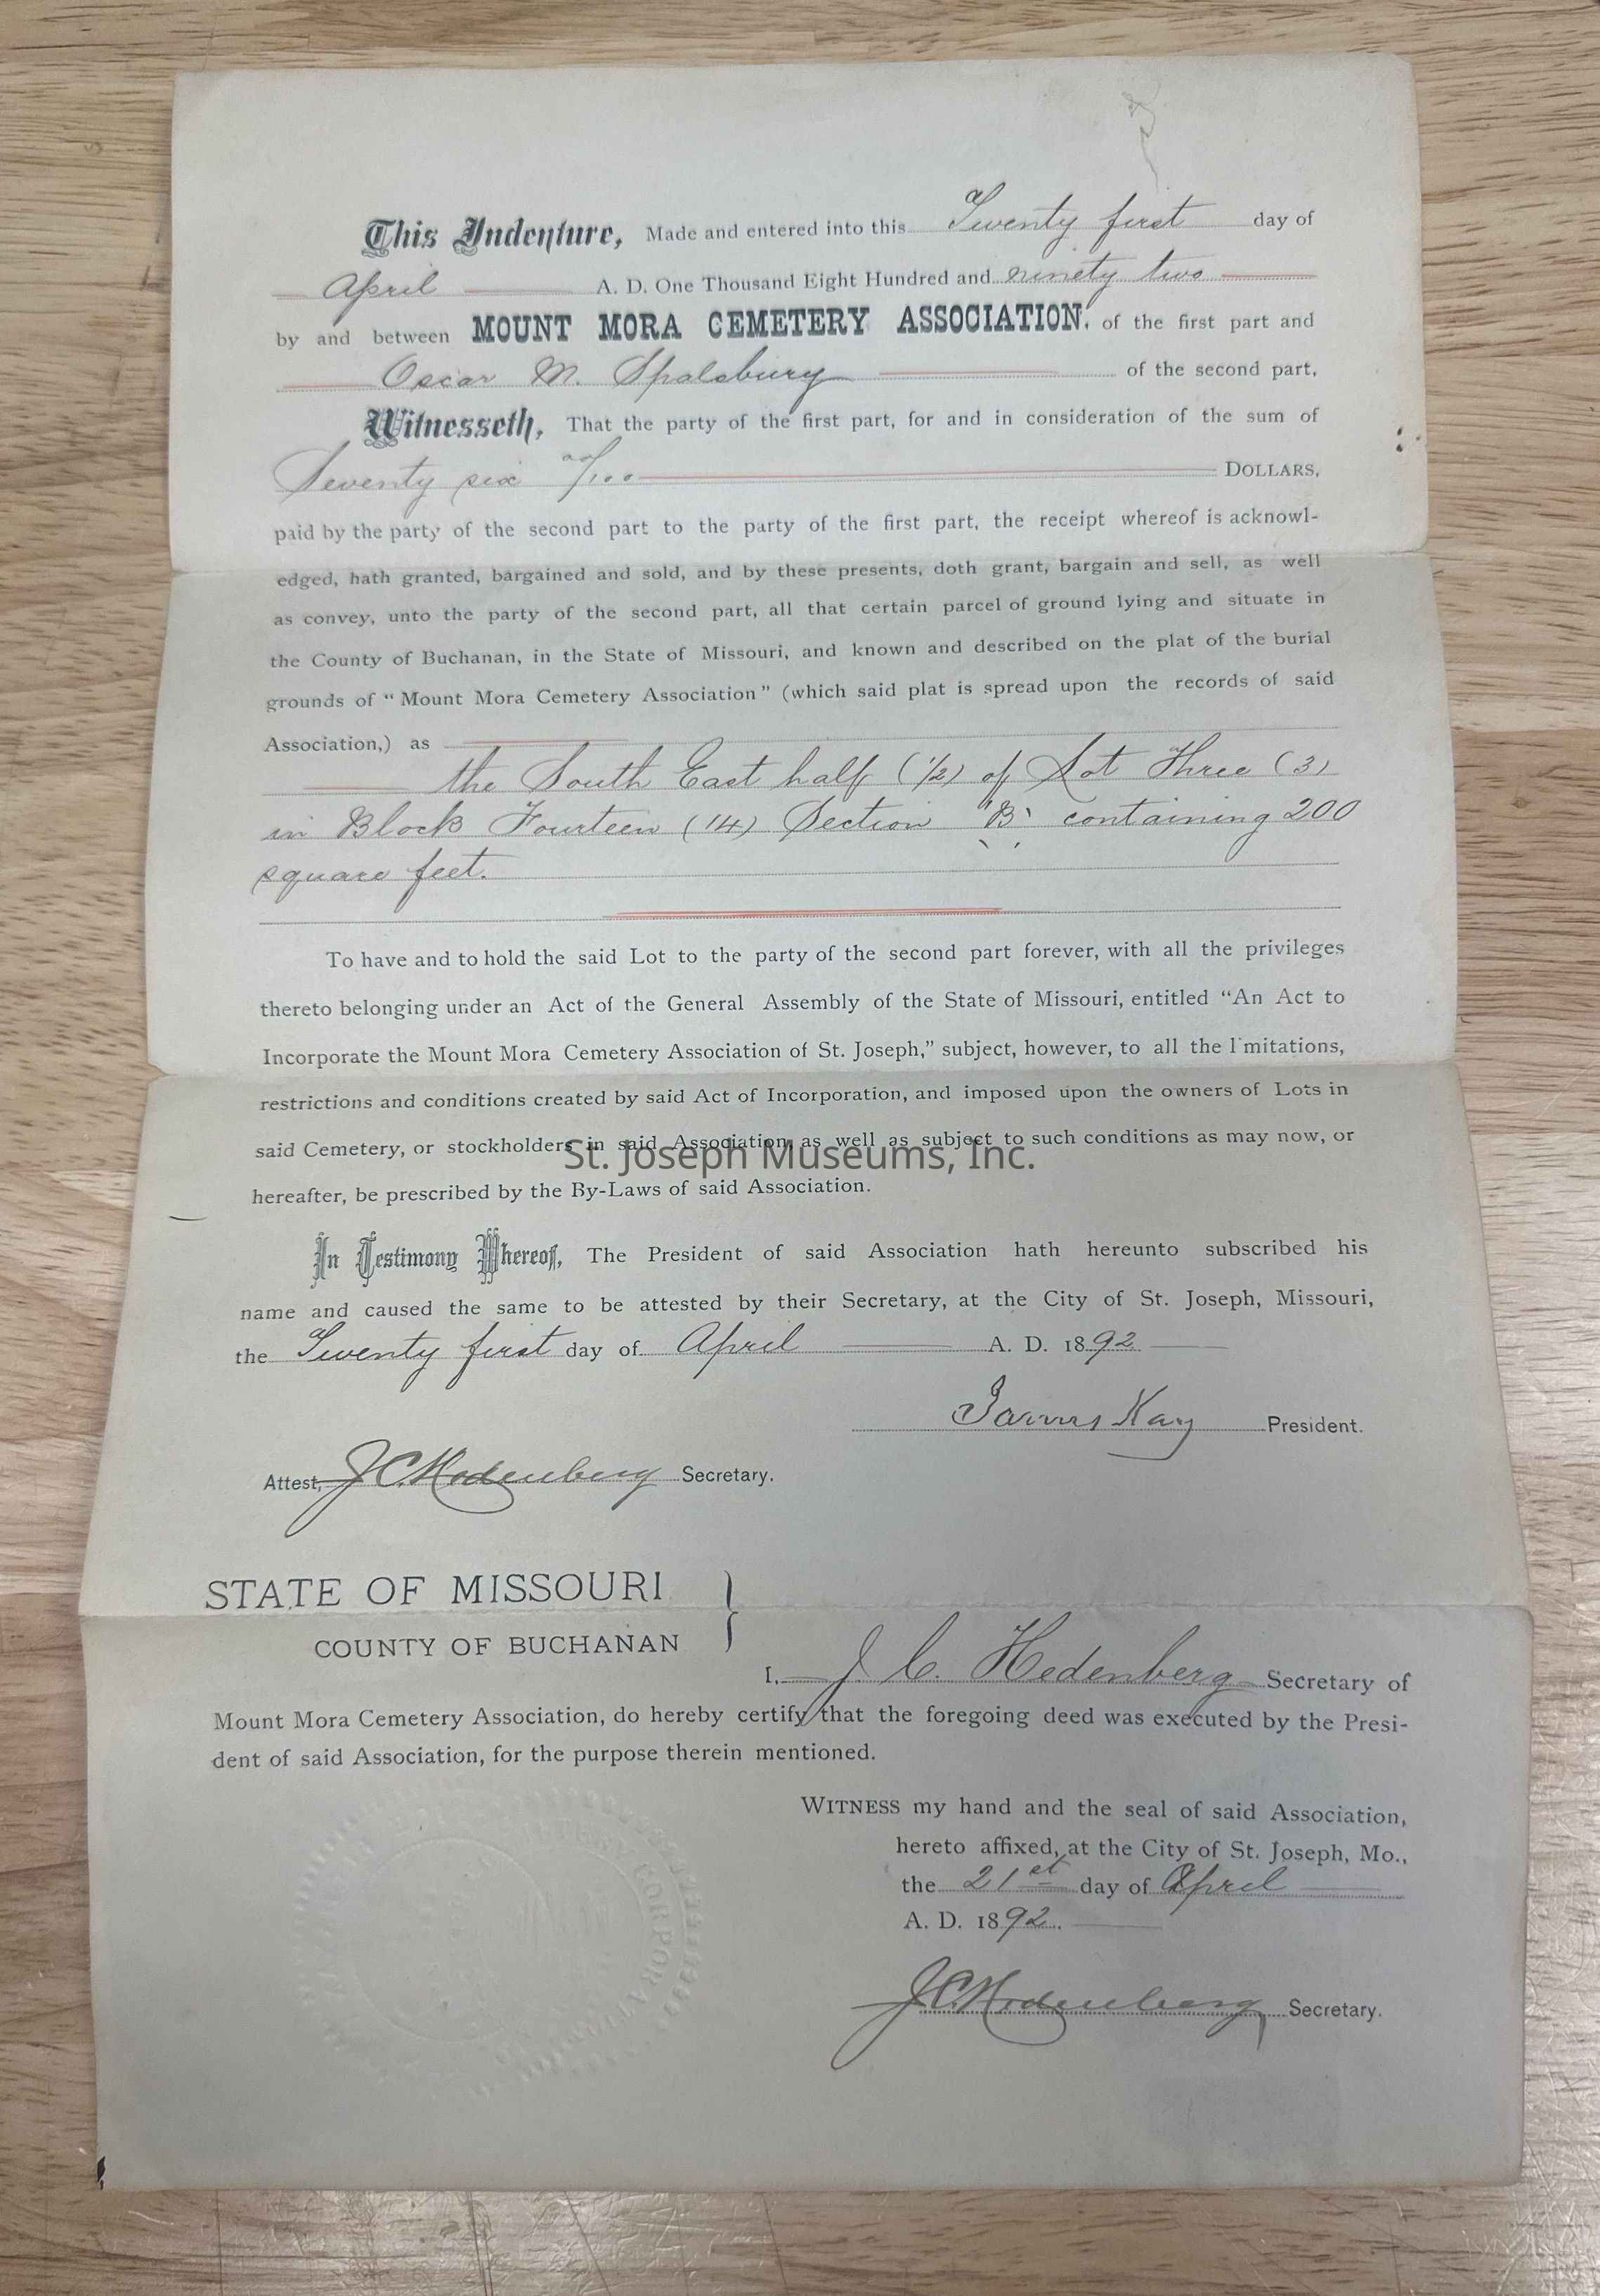 This Indenture, Made and entered into this Twenty first day of
April A. D. One Thousand Eight Hundred and ninety two
by and between MOUNT MORA CEMETERY ASSOCIATION, of the first part and
Oscar M. Spalsbury of the second part,
Witnesseth, That the party of the first part, for and in consideration of the sum of
Seventy six no/100 DOLLARS,
paid by the party of the second part to the party of the first part, the receipt whereof is acknowl-
edged, hath granted, bargained and sold, and by these presents, doth grant, bargain and sell, as well
as convey, unto the party of the second part, all that certain parcel of ground lying and situate in
the County of Buchanan, in the State of Missouri, and known and described on the plat of the burial
grounds of "Mount Mora Cemetery Association" (which said plat is spread upon the records of said
Association,) as
the South East half (1/2) of Lot Three (3)
in Block Fourteen (14) Section "B" containing 200
square feet.
To have and to hold the said Lot to the party of the second part forever, with all the privileges
thereto belonging under an Act of the General Assembly of the State of Missouri, entitled "An Act to
Incorporate the Mount Mora Cemetery Association of St. Joseph," subject, however, to all the l mitations,
restrictions and conditions created by said Act of Incorporation, and imposed upon the owners of Lots in
said Cemetery, or stockholders in said Association, as well as subject to such conditions as may now, or
St. Joseph Museums, Inc.
hereafter, be prescribed by the By-Laws of said Association.
In Testimony Whereof, The President of said Association hath hereunto subscribed his
name and caused the same to be attested by their Secretary, at the City of St. Joseph, Missouri,
the Twenty first day of April A. D. 1892
James Kay President.
Attest, J C Hedenberg Secretary.
STATE OF MISSOURI }
COUNTY OF BUCHANAN
I, J. C. Hedenberg Secretary of
Mount Mora Cemetery Association, do hereby certify that the foregoing deed was executed by the Presi-
dent of said Association, for the purpose therein mentioned.
WITNESS my hand and the seal of said Association,
hereto affixed, at the City of St. Joseph, Mo.,
the 21st day of April
A. D. 1892.
J C Hedenberg Secretary.
CORPORATION